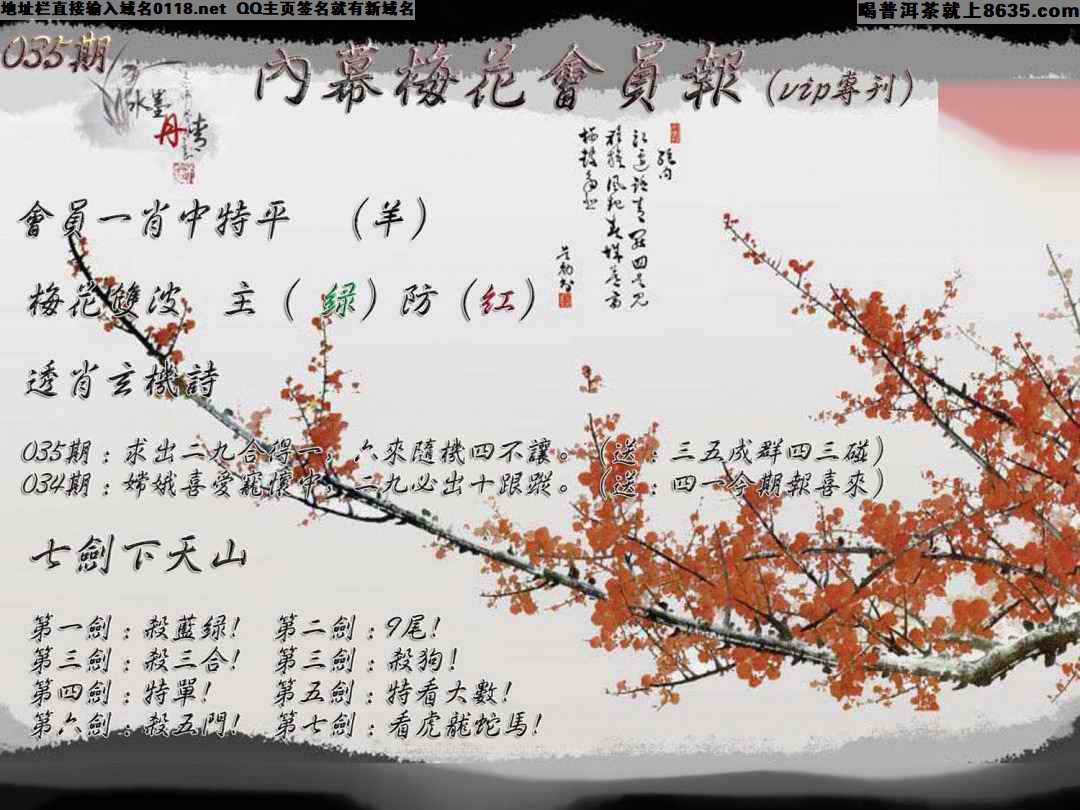 地址栏直接输入域名0118.net QQ主页签名就有新域名
喝普洱茶就上8635.com
035期
水墨丹青
內幕梅花會員報（vip專刊）
會員一肖中特平 （羊）
梅花雙波 主（绿）防（红）
透肖玄機詩
035期：求出二九合得一，六來隨機四不讓。（送：三五成群四三碰）
034期：嫦娥喜愛寵懷中，二九必出十跟蹤。（送：四一今期報喜來）
七劍下天山
第一劍：殺藍绿！ 第二劍：9尾！
第三劍：殺三合！ 第三劍：殺狗！
第四劍：特單！ 第五劍：特看大數！
第六劍：殺五門！ 第七劍：看虎龍蛇馬！